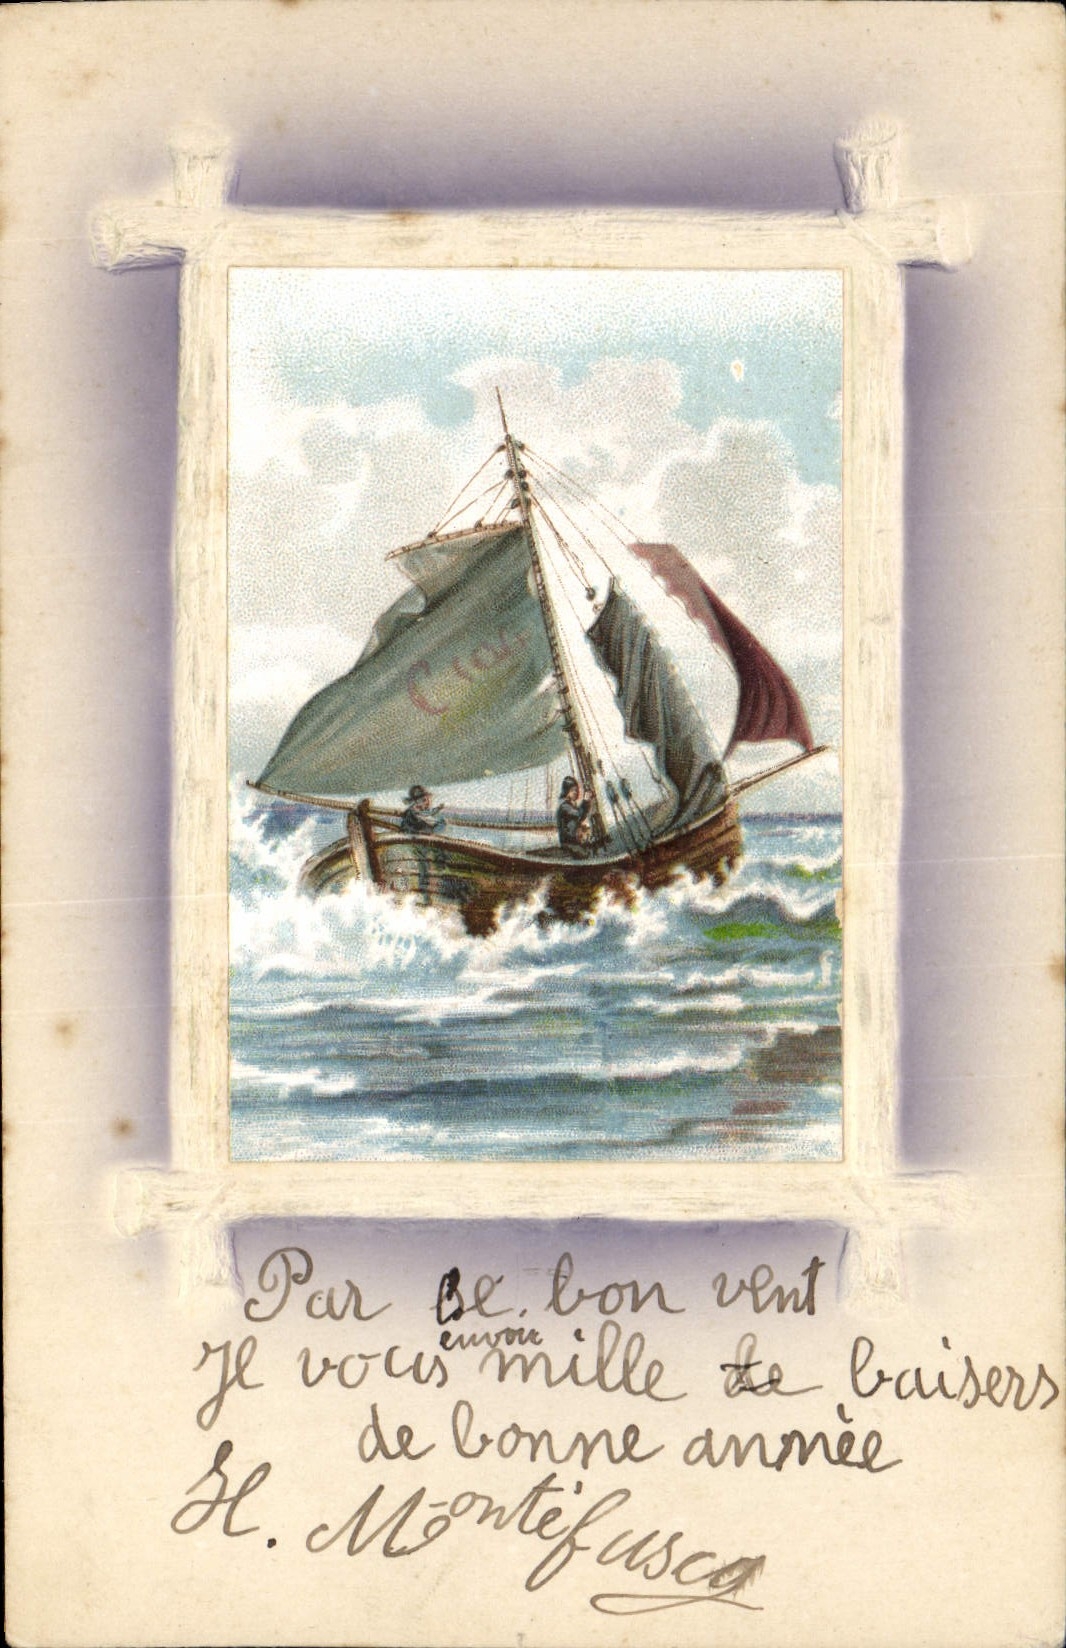 Par ce bon vent
Je vous envoie mille de baisers
de bonne année
H. Montéfusco